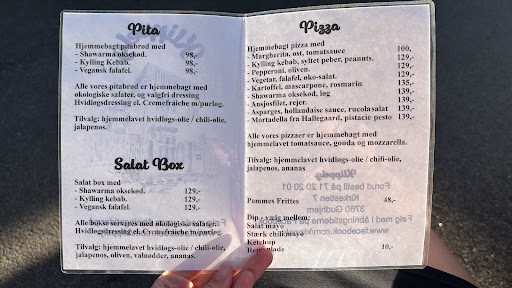 Pita
Hjemmebagt pitabrød med
- Shawarma oksekød. 98,-
- Kylling Kebab. 98,-
- Vegansk falafel. 98,-
Alle vores pitabrød er hjemmebagt med
økologiske salater, og valgfri dressing
Hvidløgsdressing el. Cremefraiche m/purløg.
Tilvalg: hjemmelavet hvidløgs-olie / chili-olie,
jalapenos.
Salat Box
Salat box med
- Shawarma oksekød. 129,-
- Kylling kebab. 129,-
- Vegansk falafel. 129,-
Alle bokse serveres med økologiske salater,
Hvidløgsdressing el. Cremefraiche m/purløg.
Tilvalg: hjemmelavet hvidløgs-olie / chili-olie,
jalapenos, oliven, valnødder, ananas.
Pizza
Hjemmebagt pizza med
- Margherita, ost, tomatsauce 100,
- Kylling kebab, syltet peber, peanuts. 129,-
- Pepperoni, oliven. 129,-
- Vegetar, falafel, øko-salat. 129,-
- Kartoffel, mascarpone, rosmarin 135,-
- Shawarma oksekød, løg 139,-
- Ansjosfilet, rejer. 139,-
- Asparges, hollandaise sauce, rucola salat 139,-
- Mortadella fra Hallegaard, pistacie pesto 139,-
Alle vores pizzaer er hjemmebagt med
hjemmelavet tomatsauce, gouda og mozzarella.
Tilvalg: hjemmelavet hvidløgs-olie / chili-olie,
jalapenos, ananas
Pommes Frittes 48,-
Dip - vælg mellem
Salat mayo
Stærk chili mayo
Ketchup
10,-